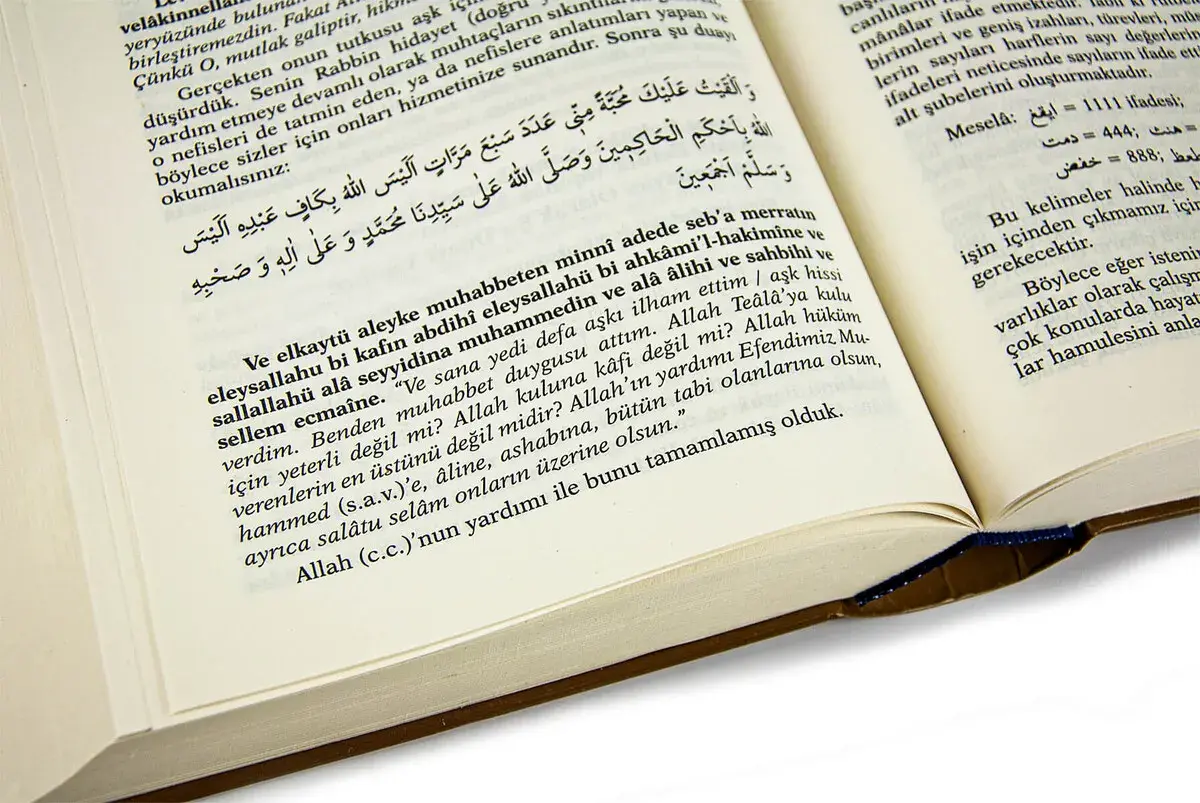 velâkinnellah
yeryüzünde bulunan
birleştiremezdin. Fakat
Çünkü O, mutlak galiptir, hikm
Gerçekten onun tutkusu aşk için
düşürdük. Senin Rabbin hidayet (doğru y
yardım etmeye devamlı olarak muhtaçların sıkıntıların
o nefisleri de tatmin eden, ya da nefislere anlatımları yapan ve
böylece sizler için onları hizmetinize sunandır. Sonra şu duayı
okumalısınız:
وَ اَلْقَيْتُ عَلَيْكَ مُحَبَّةً مِنّ۪ي عَدَدَ سَبْعَ مَرَّاتٍ اَلَيْسَ اللّٰهُ بِكَافٍ عَبْدِهِ اَلَيْسَ
اللّٰهُ بِاَحْكَمِ الْحَاكِم۪ينَ وَصَلَّى اللّٰهُ عَلٰى سَيِّدِنَا مُحَمَّدٍ وَ عَلٰى اٰلِه۪ وَ صَحْبِهِ
وَ سَلَّمْ اَجْمَع۪ينَ
Ve elkaytü aleyke muhabbeten minnî adede seb'a merratın
eleysallahu bi kafın abdihî eleysallahü bi ahkâmi'l-hakimîne ve
sallallahü alâ seyyidina muhammedin ve alâ âlihi ve sahbihi ve
sellem ecmaîne. "Ve sana yedi defa aşkı ilham ettim / aşk hissi
verdim. Benden muhabbet duygusu attım. Allah Teâlâ'ya kulu
için yeterli değil mi? Allah kuluna kâfi değil mi? Allah hüküm
verenlerin en üstünü değil midir? Allah'ın yardımı Efendimiz Mu-
hammed (s.a.v.)'e, âline, ashabına, bütün tabi olanlarına olsun,
ayrıca salâtu selâm onların üzerine olsun."
Allah (c.c.)'nun yardımı ile bunu tamamlamış olduk.
canlıların
mânâlar ifade etmektedir.
birimleri ve geniş izahları, türevleri, mü
lerin sayıları harflerin sayı değerlerin
ifadeleri neticesinde sayıların ifade et
alt şubelerini oluşturmaktadır.
Meselâ: ايقغ = 1111 ifadesi;
دمت = 444; هنث =
خفض = 888;
Bu kelimeler halinde
işin içinden çıkmamız için
gerekecektir.
Böylece eğer istenir
varlıklar olarak çalışm
çok konularda hayat
lar hamulesini anla